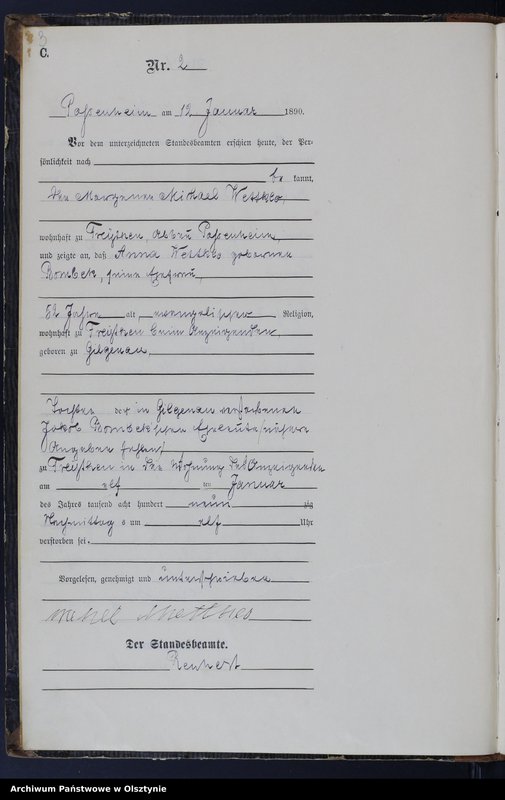 3
C.
Nr. 2
Passenheim am 12 Januar 1890.
Vor dem unterzeichneten Standesbeamten erschien heute, der Per-
sönlichkeit nach
be kannt,
der Maurer Michael
wohnhaft zu Abbau Passenheim,
und zeigte an, daß Anna geborene
Bombek, seine Ehefrau,
Jahre alt, evangelischer Religion,
wohnhaft zu beim Anzeigenden,
geboren zu Gilgenau,
Tochter der in Gilgenau verstorbenen
Jakob Bombek'schen Eheleute/nähere
Angaben fehlen/
zu in der Wohnung des Anzeigenden
am elf ten Januar
des Jahres tausend acht hundert neun zig
Nachmittag s um elf Uhr
verstorben sei.
Vorgelesen, genehmigt und unterschrieben
Der Standesbeamte.
Archiwum Państwowe w Olsztynie